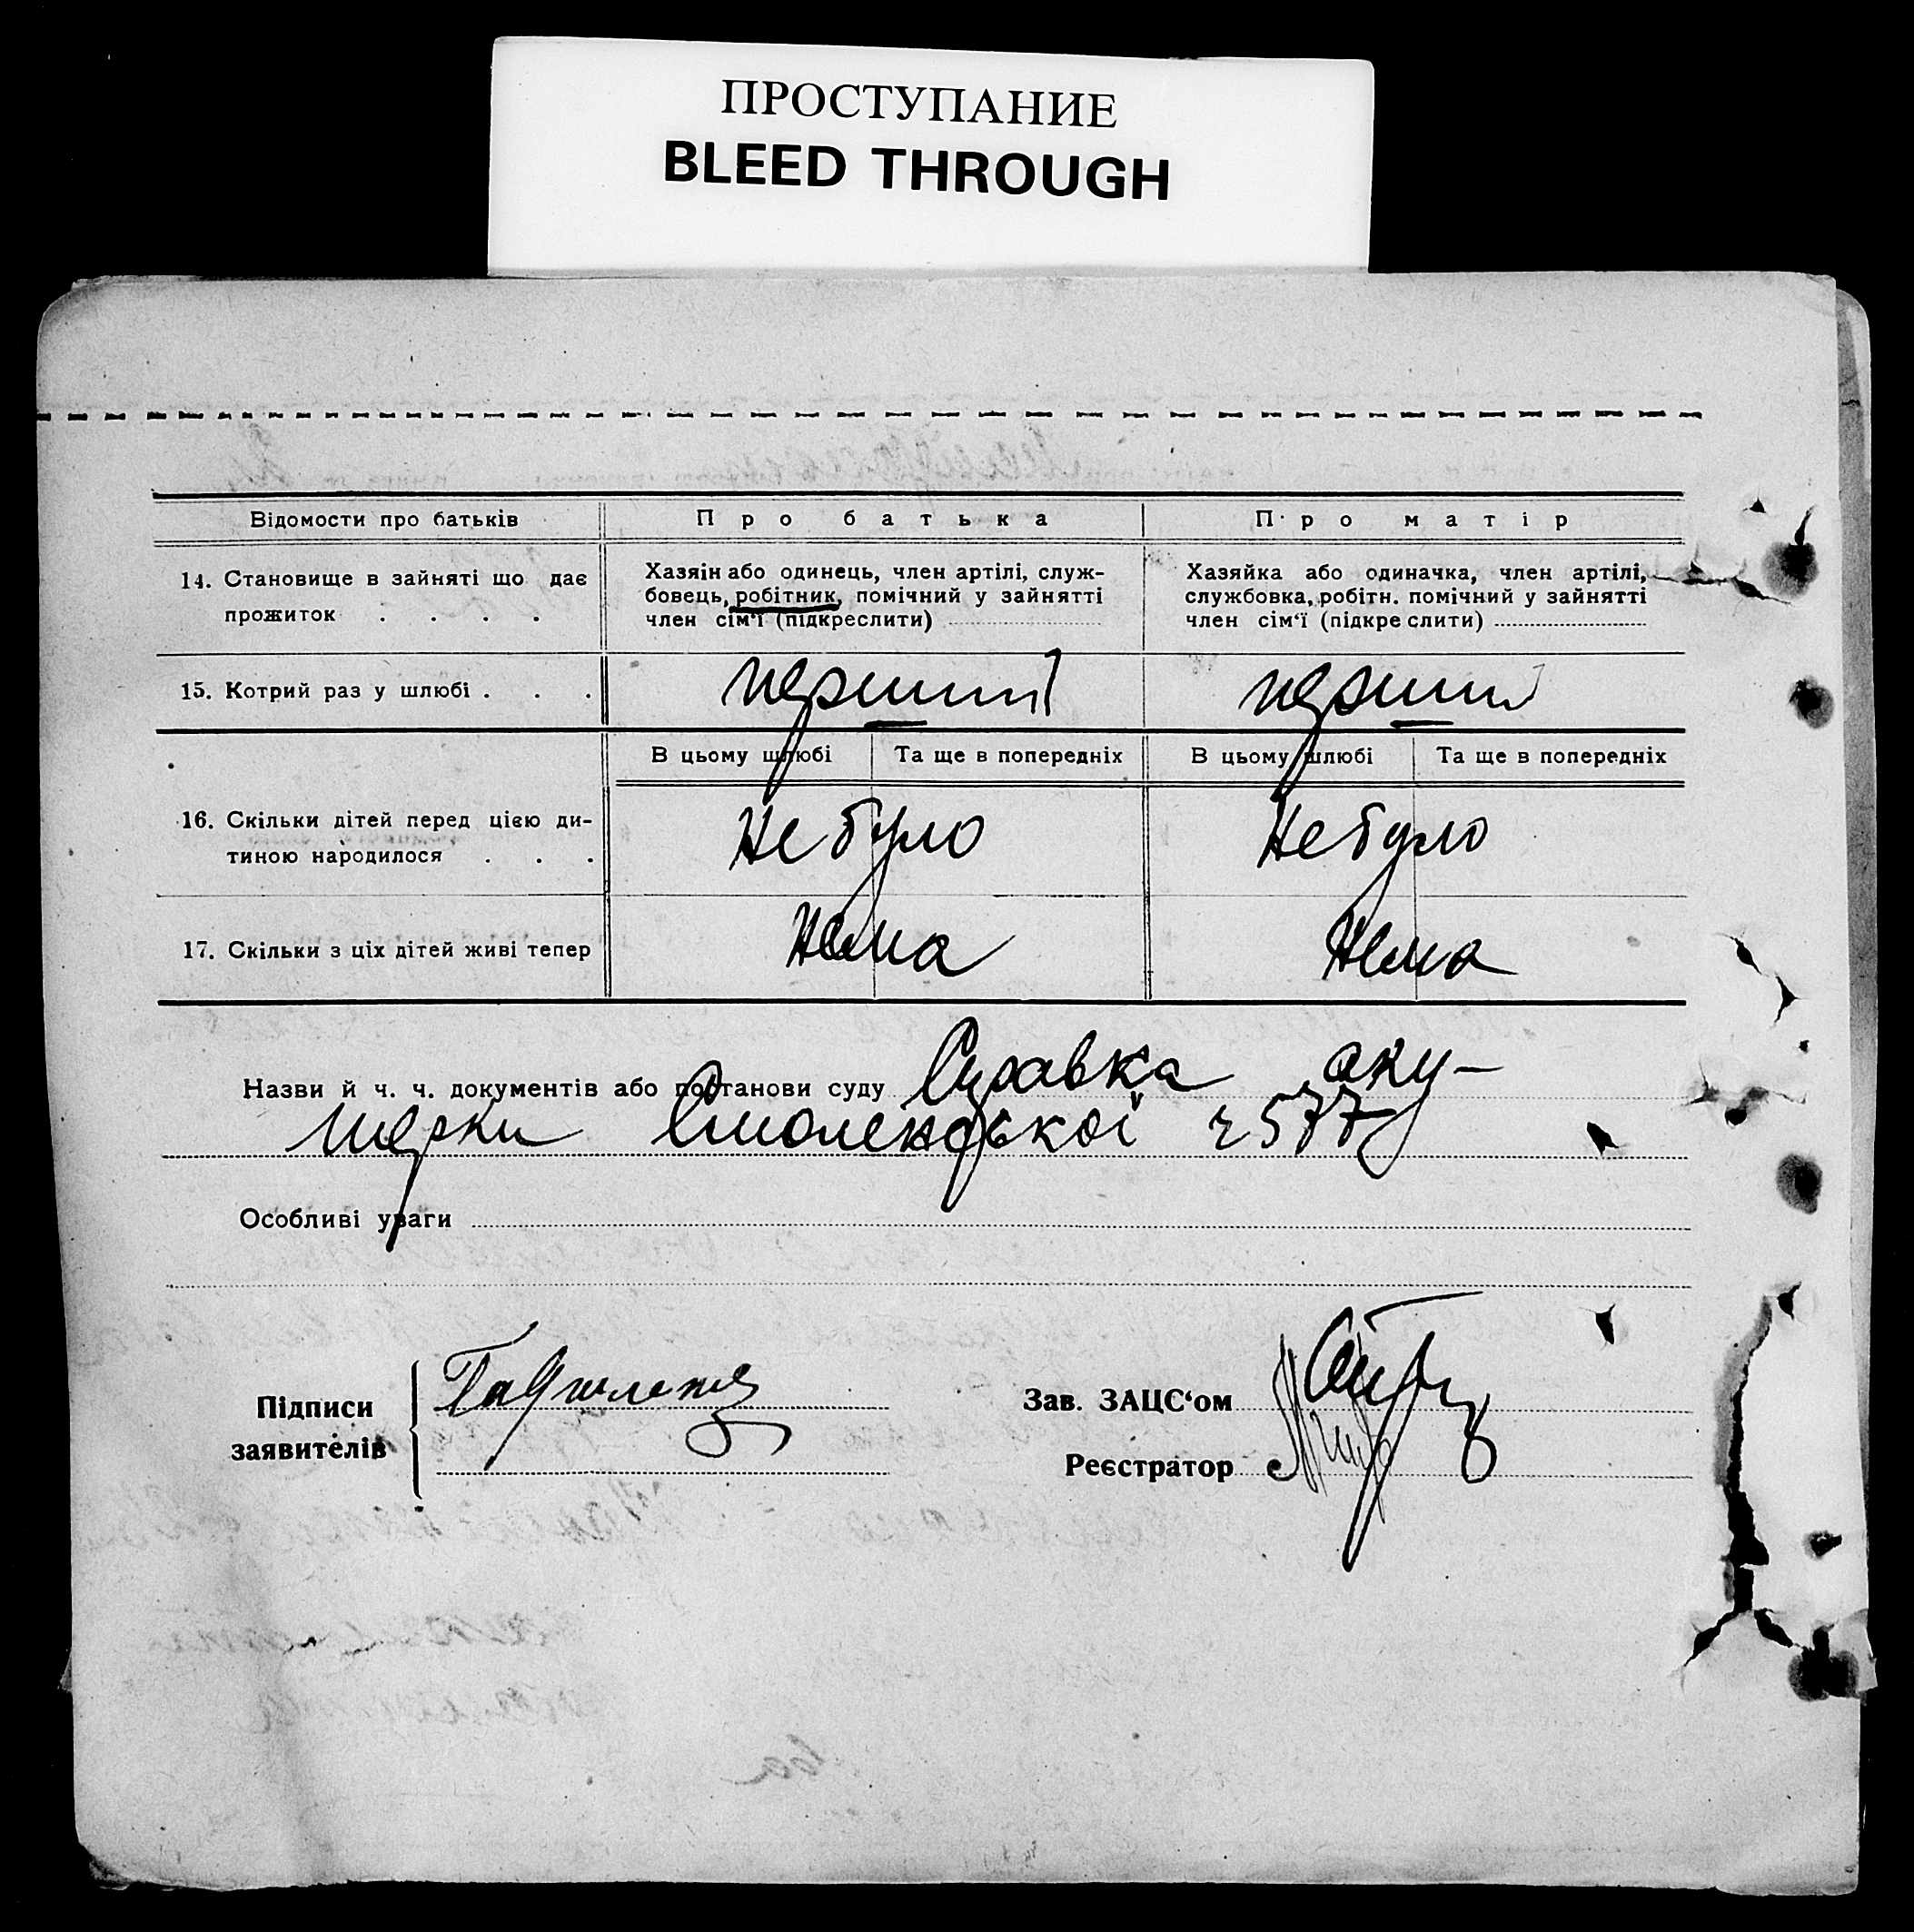 ПРОСТУПАНИЕ
BLEED THROUGH
Відомости про батьків
Про батька
Про матір
14. Становище в зайняті що дає
прожиток . . . .
Хазяїн або одинець, член артілі, служ-
бовець, робітник, помічний у зайнятті
член сім‘ї (підкреслити)
Хазяйка або одиначка, член артілі,
службовка, робітн. помічний у зайнятті
член сім‘ї (підкреслити)
15. Котрий раз у шлюбі . . .
перший
перший
В цьому шлюбі
Та ще в попередніх
В цьому шлюбі
Та ще в попередніх
16. Скільки дітей перед цією ди-
тиною народилося . . .
Не було
Не було
17. Скільки з ціх дітей живі тепер
Нема
Нема
Назви й ч. ч. документів або постанови суду Справка аку-
шерки Смоленської ч 577
Особливі уваги
Підписи
заявителів
Зав. ЗАЦС‘ом
Реєстратор